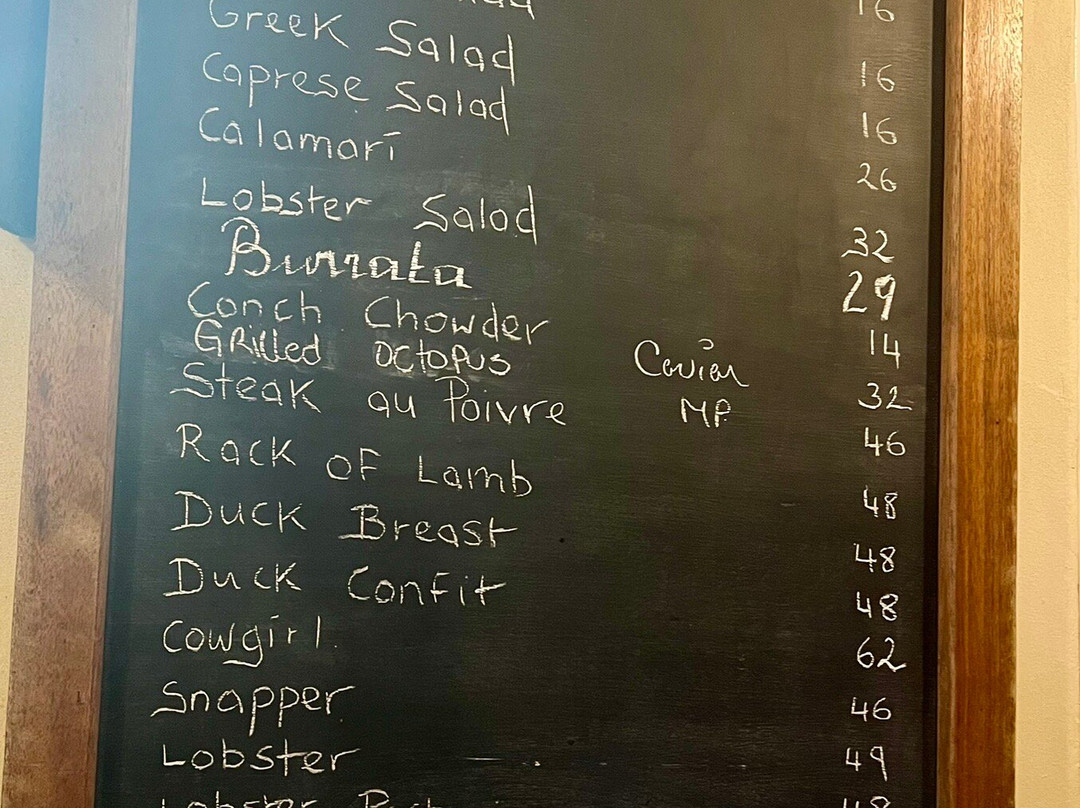 16
Greek Salad 16
Caprese Salad 16
Calamari 26
Lobster Salad 32
Burrata 29
Conch Chowder 14
Grilled Octopus Caviar 32
Steak au Poivre MP 46
Rack of Lamb 48
Duck Breast 48
Duck Confit 48
Cowgirl 62
Snapper 46
Lobster 49
Lobster 48